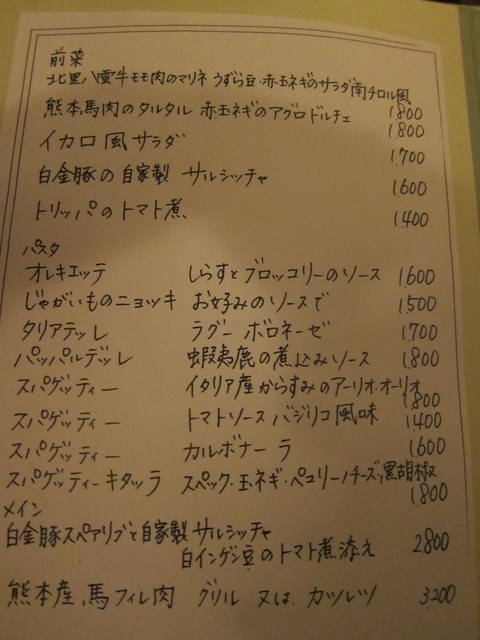 前菜
北里八雲牛モモ肉のマリネ うずら豆・赤玉ネギのサラダ南チロル風
1,800
熊本馬肉のタルタル 赤玉ネギのアグロドルチェ
1,800
イカロ風サラダ 1,700
白金豚の自家製 サルシッチャ 1,600
トリッパのトマト煮 1,400
パスタ
オレキエッテ しらすとブロッコリーのソース 1,600
じゃがいものニョッキ お好みのソースで 1,500
タリアテッレ ラグー ボロネーゼ 1,700
パッパルデッレ 蝦夷鹿の煮込みソース 1,800
スパゲッティー イタリア産からすみのアーリオ・オーリオ
1,800
スパゲッティー トマトソース バジリコ風味 1400
スパゲッティー カルボナーラ 1,600
スパゲッティーキタッラ スペック・玉ネギ・ペコリーノチーズ,黒胡椒
1,800
メイン
白金豚スペアリブと自家製サルシッチャ
白インゲン豆のトマト煮添え 2,800
熊本産,馬フィレ肉 グリル 又は, カツレツ 3,200